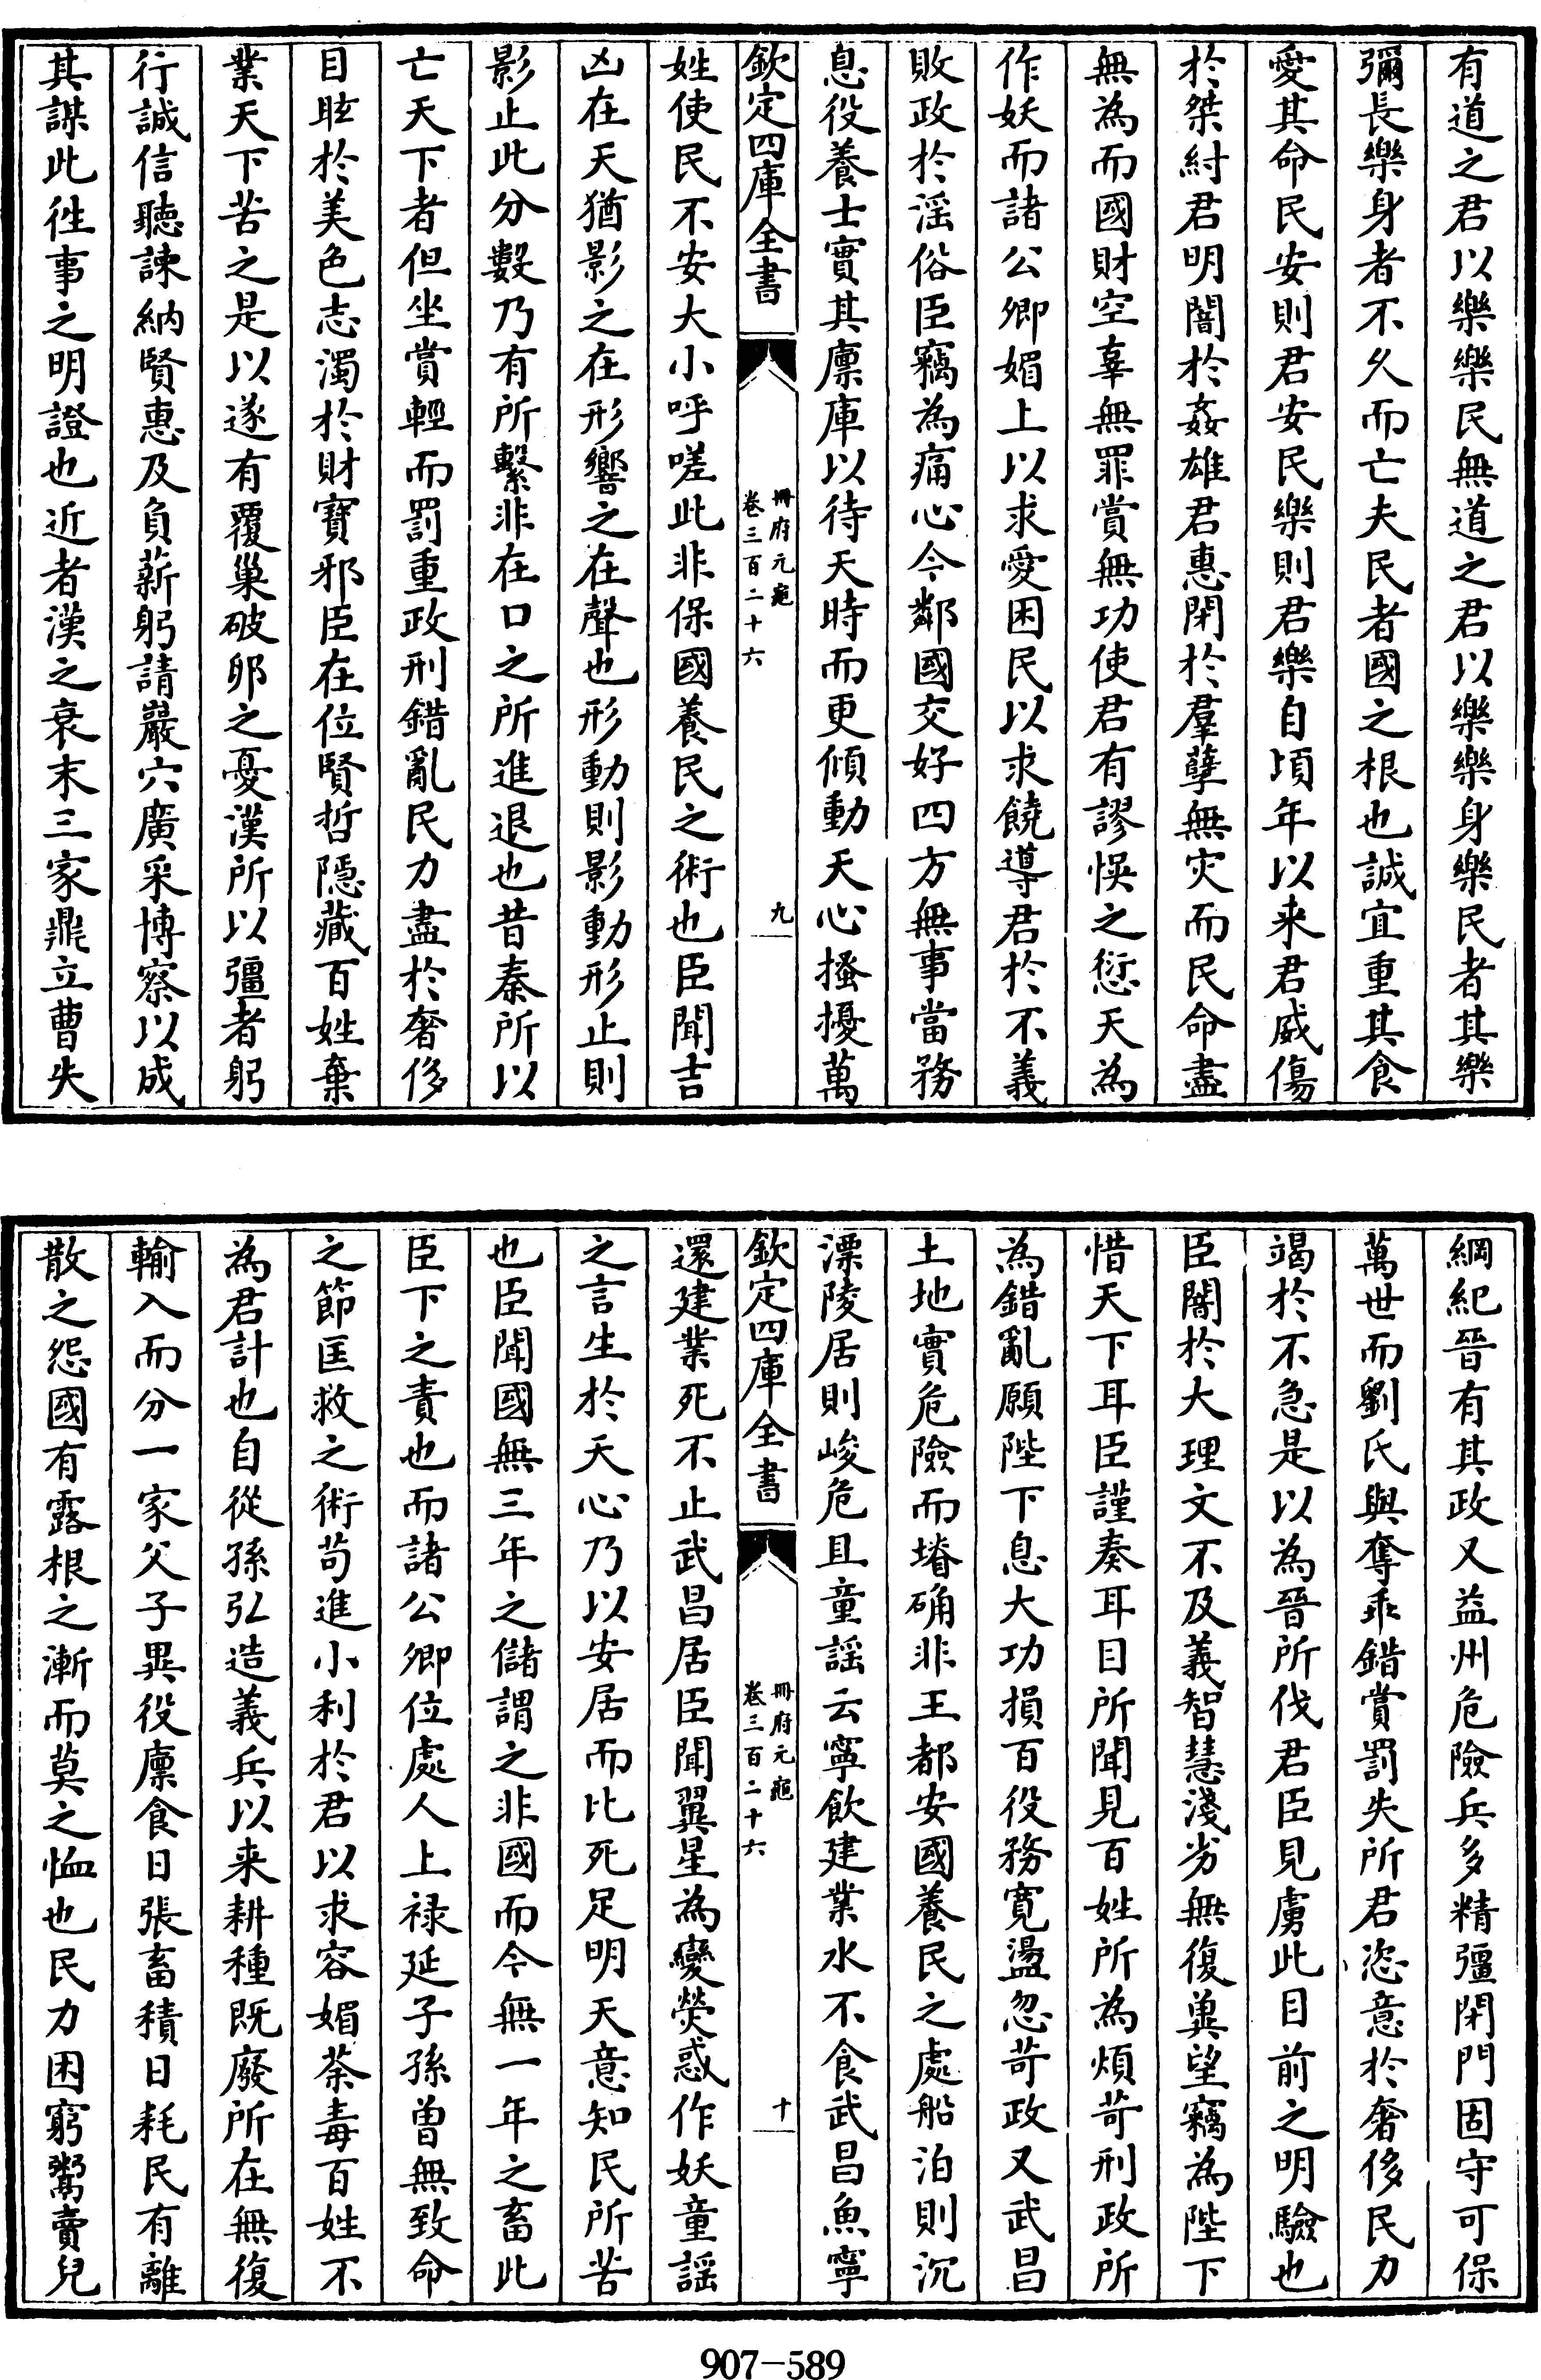 有道之君以樂樂民無道之君以樂樂身樂民者其樂
彌長樂身者不乆而亡夫民者國之根也誠宜重其食
愛其命民安則君安民樂則君樂自頃年以来君威傷
於桀紂君明闇於姦雄君惠閉於羣孽無灾而民命盡
無為而國財空辜無罪賞無功使君有謬悞之愆天為
作妖而諸公卿媚上以求愛困民以求饒導君於不義
敗政於淫俗臣竊為痛心今鄰國交好四方無事當務
息役養士實其廪庫以待天時而更傾動天心搔擾萬
欽定四庫全書
冊府元龜
卷三百二十六
九
姓使民不安大小呼嗟此非保國養民之術也臣聞吉
凶在天猶影之在形響之在聲也形動則影動形止則
影止此分數乃有所繫非在口之所進退也昔秦所以
亡天下者但坐賞輕而罰重政刑錯亂民力盡於奢侈
目眩於美色志濁於財寳邪臣在位賢哲隱藏百姓棄
業天下苦之是以遂有覆巢破卵之憂漢所以彊者躬
行誠信聽諫納賢惠及負薪躬請巖穴廣采博察以成
其謀此徃事之明證也近者漢之衰末三家鼎立曹失
綱紀晉有其政又益州危險兵多精彊閉門固守可保
萬世而劉氏與奪乖錯賞罰失所君恣意於奢侈民力
竭於不急是以為晉所伐君臣見虜此目前之明驗也
臣闇於大理文不及義智慧淺劣無復兾望竊為陛下
惜天下耳臣謹奏耳目所聞見百姓所為煩苛刑政所
為錯亂願陛下息大功損百役務寛盪忽苛政又武昌
土地實危險而塉确非王都安國養民之處船泊則沉
漂陵居則峻危且童謡云寧飲建業水不食武昌魚寧
欽定四庫全書
冊府元龜
卷三百二十六
十
還建業死不止武昌居臣聞翼星為變熒惑作妖童謡
之言生於天心乃以安居而比死足明天意知民所苦
也臣聞國無三年之儲謂之非國而今無一年之畜此
臣下之責也而諸公卿位處人上禄延子孫曽無致命
之節匡救之術茍進小利於君以求容媚荼毒百姓不
為君計也自從孫弘造義兵以来耕種既廢所在無復
輸入而分一家父子異役廪食日張畜積日耗民有離
散之怨國有露根之漸而莫之恤也民力困窮鬻賣兒
907-589